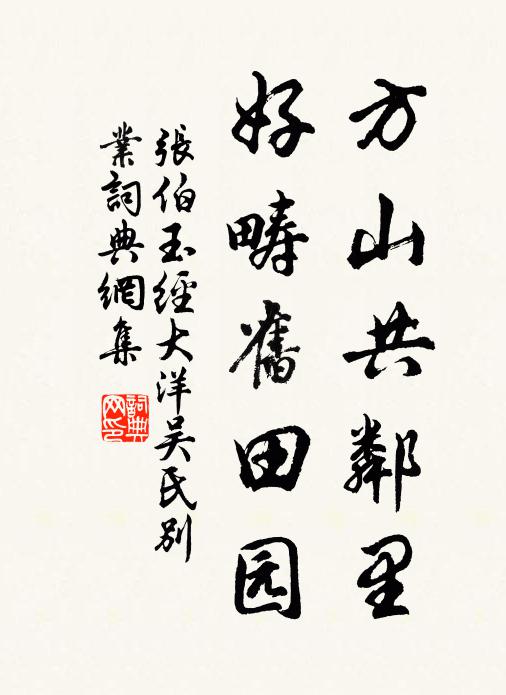 方山共鄰里
好疇舊田园
張伯玉經大洋吴氏別
業詞典網集
詞典
网印